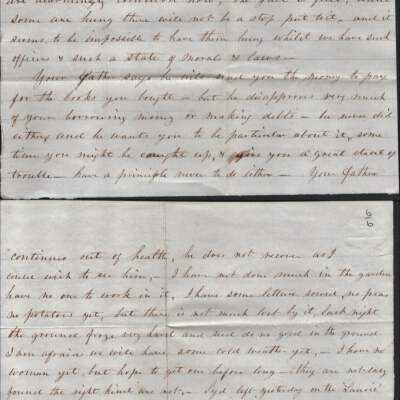 are alarmingly common now, our jail is full, until
some are hung there will not be a stop put to it. and it
seems to be impossible to have them hung whilst we have such
officers & such a State of Morals & laws —
Your father says he will send you the money to pay
for the books you bought — but he disapproves very much
of your borrowing money or making debts — he never did
either and he wants you to be particular about it, some
time you might be caught up, & give you a great deal of
trouble — have a principle never to do either — Your father
96
continues out of health, he does not recover as I
could wish to see him, — I have not done much in the garden
have no one to work in it, I have some lettuce sowed, no peas
no potatoes yet, but there is not much lost by it, last night
the ground froze very hard and seed do no good in the ground
I am afraid we will have some cold weather yet, — I have no
woman yet, but hope to get one before long — they are not easy
found the right kind are not, — Syd left yesterday on the